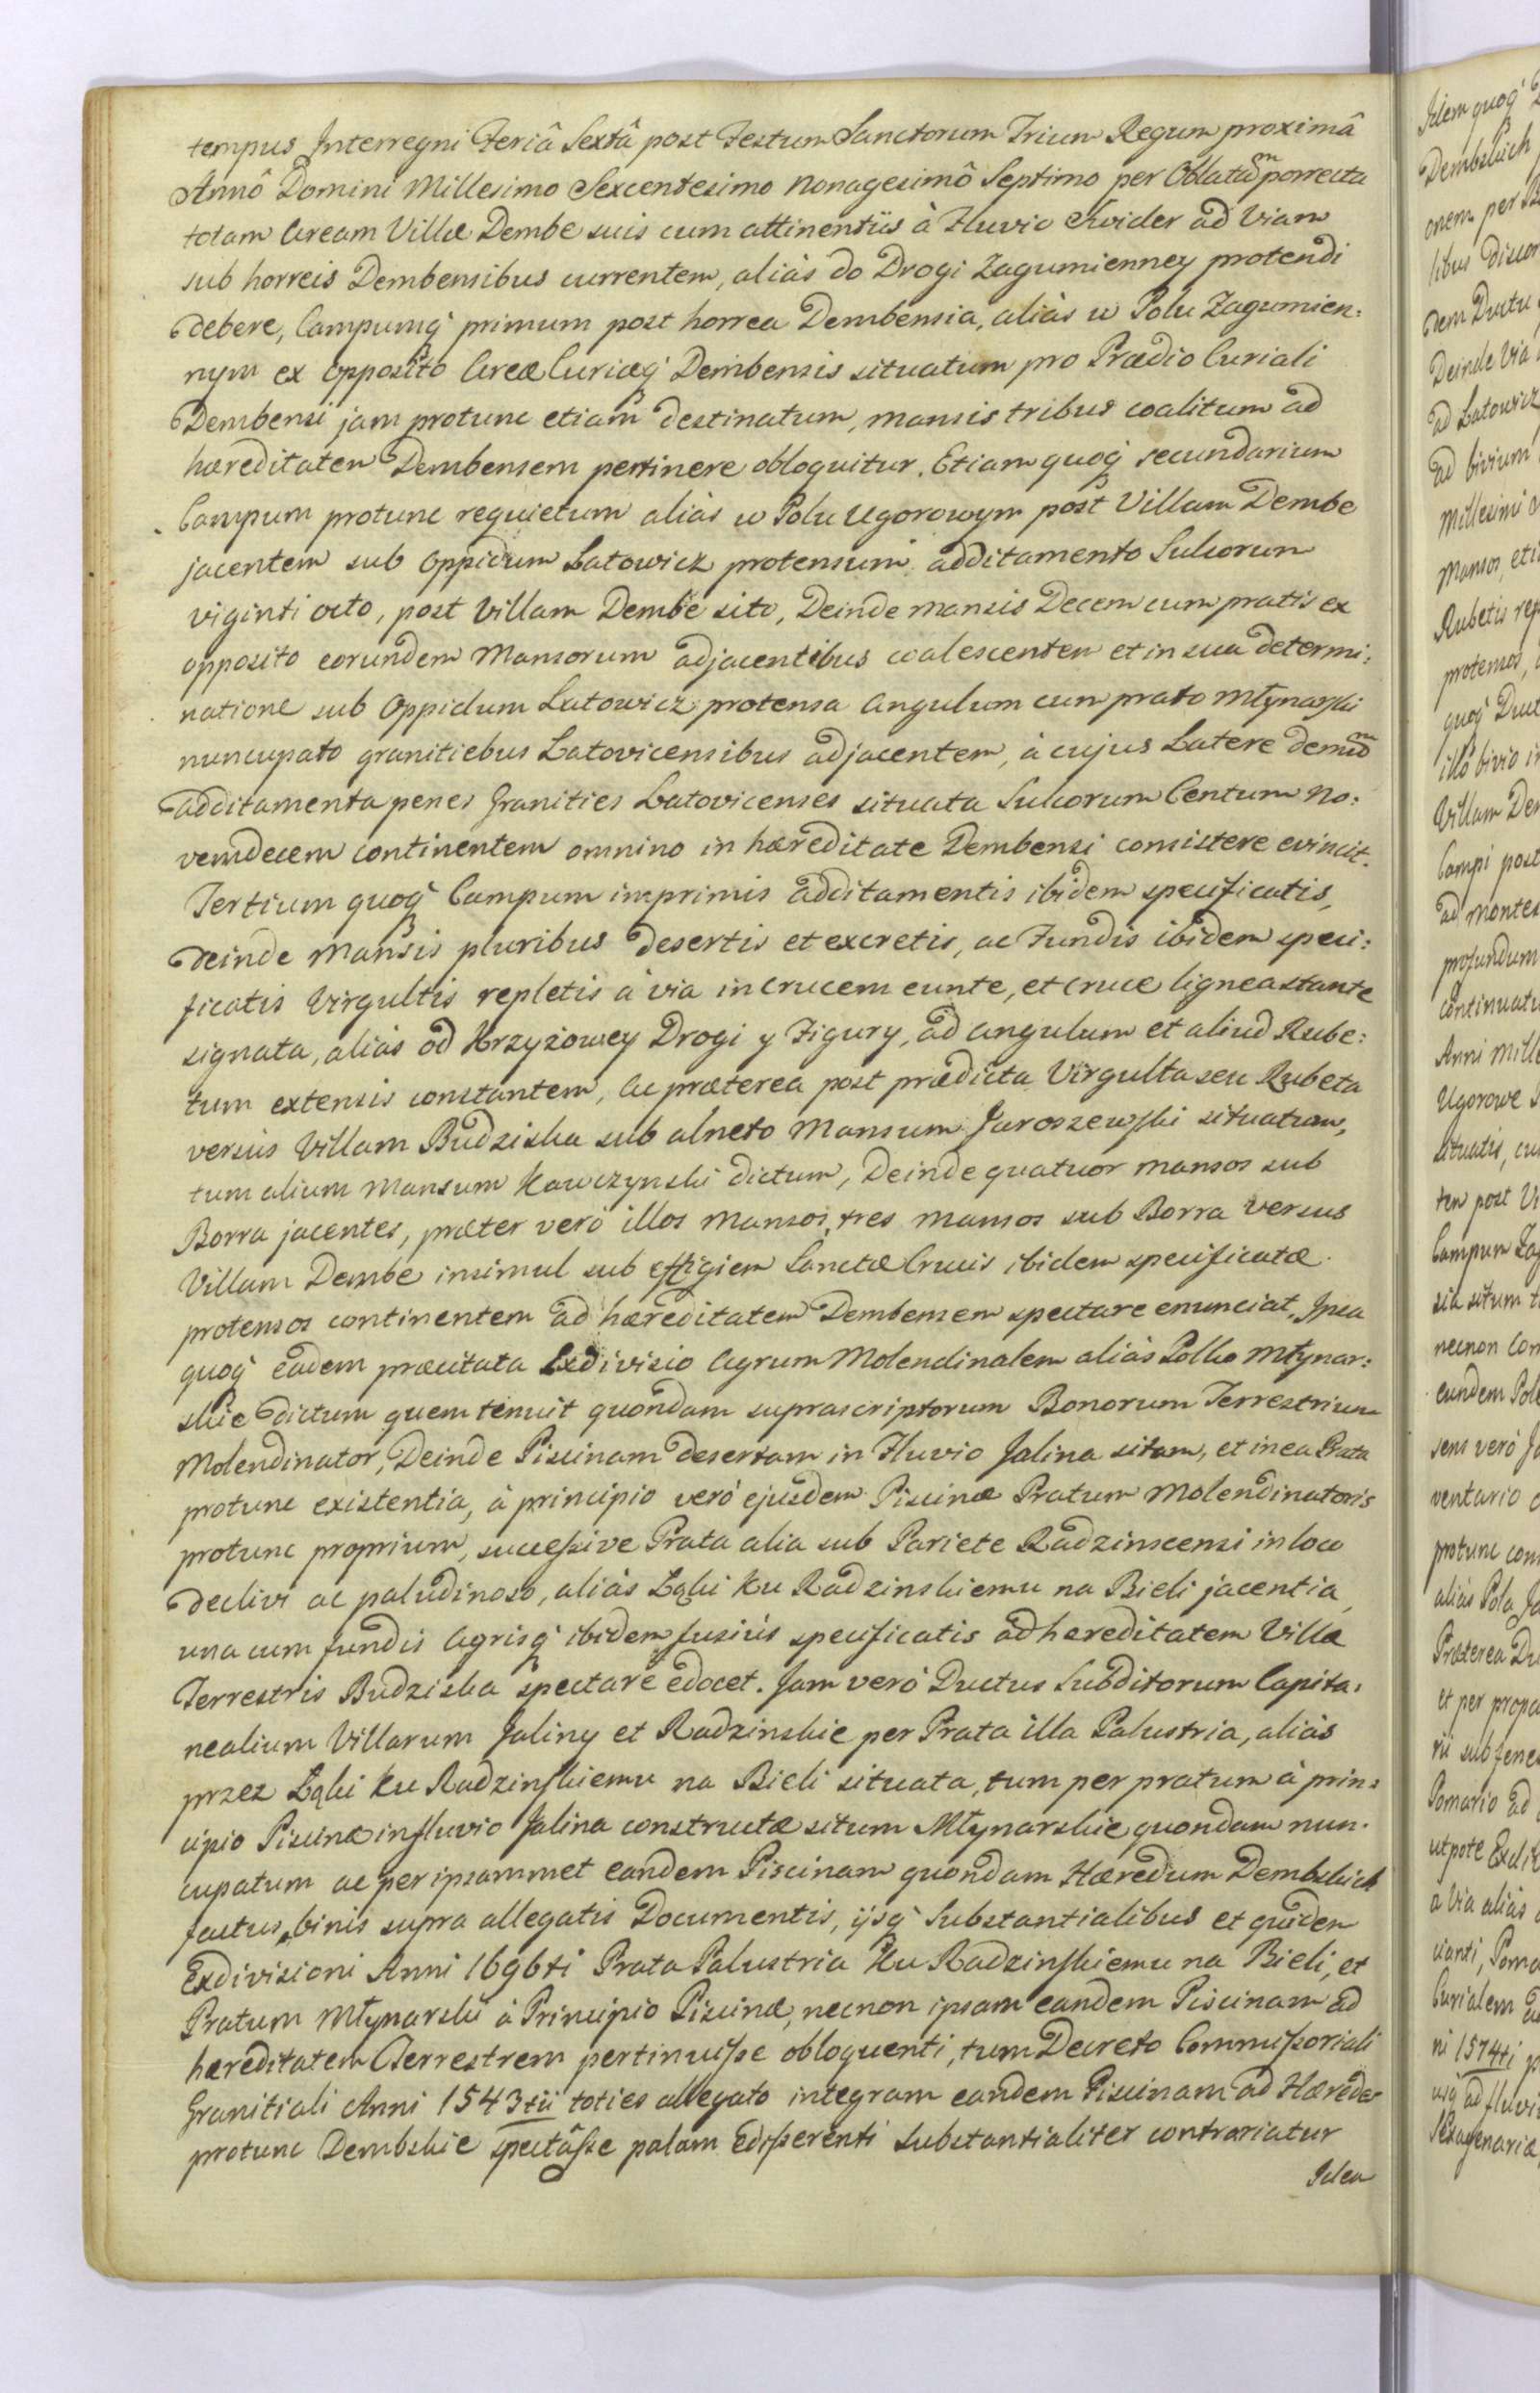 tempus Interregni Feriâ Sextâ post Festum Sanctorum Trium Regum proximâ
Annô Domini Millesimo Sexcentesimo Nonagesimô Septimo per Oblatam porrecta
totam Aream Villæ Dembe suis cum attinentiis à Fluvio Swider ad Viam
sub horreis Dembensibus currentem, aliàs do Drogi Zagumienney protendi
debere, Campumq́ primum post horrea Dembensia, aliàs w Polu Zagumien:
nym ex opposito Areæ Curiæq́ Dembensis situatum pro Prædio Curiali
Dembensi jam protunc etiam destinatum, mansis tribus coalitum ad
hæreditatem Dembensem pertinere obloquitur. Etiam quoq́ secundarium
Campum protunc requietum aliàs w Polu Ugorowym post Villam Dembe
jacentem sub oppidum Latowicz protensum additamento Sulcorum
viginti octo, post Villam Dembe sito, Deinde mansis Decem cum pratis ex
opposito eorundem Mansorum adjacentibus coalescentem et in sua determi:
natione sub Oppidum Latowicz protensa Angulum cum prato Młynarski
nuncupato granitiebus Latovicensibus adjacentem, à cujus Latere demum
additamenta penes Granities Latovicenses situata Sulcorum Centum No:
vemdecem continentem omnino in hæreditate Dembensi consistere evincit.
Tertium quoq́ Campum inprimis additamentis ibidem specificatis,
deinde Mansis pluribus desertis et excretis, ac Fundis ibidem speci:
ficatis Virgultis repletis à via in crucem eunte, et cruce lignea stante
signata, aliàs od Krzyżowey Drogi y Figury, ad angulum et aliud Rube:
tum extensis constantem, Ac præterea post prædicta Virgulta seu Rubeta
versus Villam Budziska sub alneto Mansum Jaroszewski situatum,
tum alium Mansum Kawczynski dictum, Deinde quatuor mansos sub
Borra jacentes, præter verò illos Mansos, tres mansos sub Borra versus
Villam Dembe insimul sub effigiem Sanctæ Crucis ibidem specificatæ
protensos continentem ad hæreditatem Dembensem spectare enunciat. Ipsa
quoq́ eadem præcitata Exdivisio Agrum Molendinalem aliàs Polko Młynar:
skie dictum quem tenuit quondam suprascriptorum Bonorum Terrestrium
Molendinator, Deinde Piscinam desertam in Fluvio Jalina sitam, et in ea Prata
protunc existentia, à principio verò ejusdem Piscinæ Pratum Molendinatoris
protunc proprium, successive Prata alia sub Pariete Radzinscensi in loco
declivi ac paludinoso, aliàs Łąki ku Radzinskiemu na Bieli jacentia,
una cum fundis Agrisq́ ibidem fusiùs specificatis ad hæreditatem Villæ
Terrestris Budziska spectare edocet. Jam verò Ductus Subditorum Capita:
nealium Villarum Jaliny et Radzinskie per Prata illa Palustria, aliàs
przez Łąki ku Radzinskiemu na Bieli situata, tum per pratum à prin:
cipio Piscinæ in fluvio Jalina constructæ situm Młynarskie quondam nun:
cupatum ac per ipsammet eandem Piscinam quondam Hæredum Dembskich
factus, binis supra allegatis Documentis, ijsq́ Substantialibus et quidem
Exdivisioni Anni 1696ti Prata Palustria Ku Radzinskiemu na Bieli, et
Pratum Młynarski à Principio Piscinæ, necnon ipsam eandem Piscinam ad
hæreditatem Terrestrem pertinuisse obloquenti, tum Decreto Commissoriali
Granitiali Anni 1543tii toties allegato integram eandem Piscinam ad Hæredes
protunc Dembskie spectâsse palam edisserenti substantialiter contrariatur
Idem

Idem quoq́
Dembskich
onem per
libus
dem Ductu
Deinde Via
ad Latowicz
ad bivium
Millesimi
Mansos, eti
Rubetis
protensos,
quoq́ Duct
illô bivio
Villam Dem
Campi post
ad montes
profundum
continuat
Anni Mill
Ugorowe
situatis,
tem post
Campum
sia situm
necnon
eundem
sens verò
ventario
protunc
aliàs Pola
Præterea
et per
rii sub
Pomario ad
utpote
a Via aliàs
cianti,
Curialem
ni 1574ti
usq́ ad fluvi
Sexagenaria